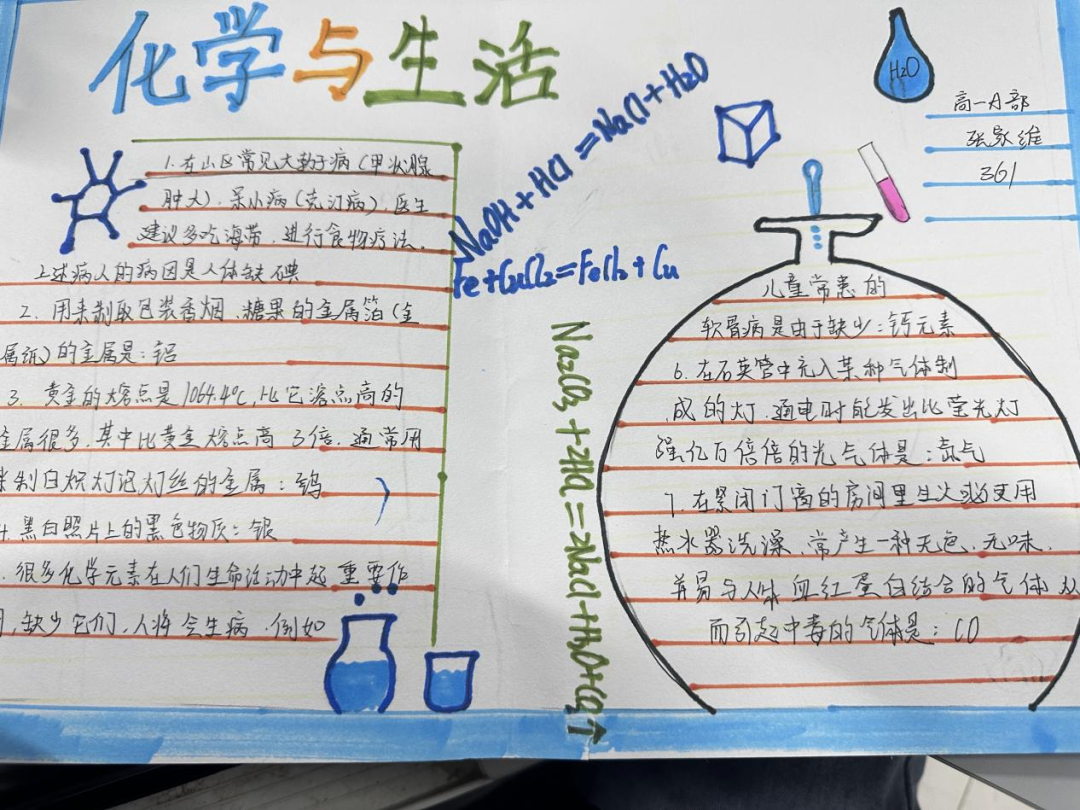 化学与生活
1.在山区常见大勃子病(甲状腺
肿大).呆小病(克汀病).医生
建议多吃海带.进行食物疗法.
上述病人的病因是人体缺碘
2.用来制取包装香烟.糖果的金属箔(金
属纸)的金属是:铝
3.黄金的熔点是1064.4℃,比它溶点高的
金属很多.其中比黄金熔点高3倍.通常用
来制白炽灯泡灯丝的金属:钨
4.黑白照片上的黑色物质:银
.很多化学元素在人们生命活动中起重要作
用,缺少它们.人将会生病.例如
NaOH+HCl=NaCl+H2O
Fe+CuCl2=FeCl2+Cu
Na2CO3+2HCl=2NaCl+H2O+CO2↑
H2O
高一A部
张家维
361
儿童常患的
软骨病是由于缺少:钙元素
6.在石英管中充入某种气体制
成的灯.通电时能发出比萤光灯
强亿万倍倍的光气体是:氙气
7.在紧闭门窗的房间里生火或使用
热水器洗澡.常产生一种无色.无味.
并易与人体血红蛋白结合的气体从
而引起中毒的气体是:CO